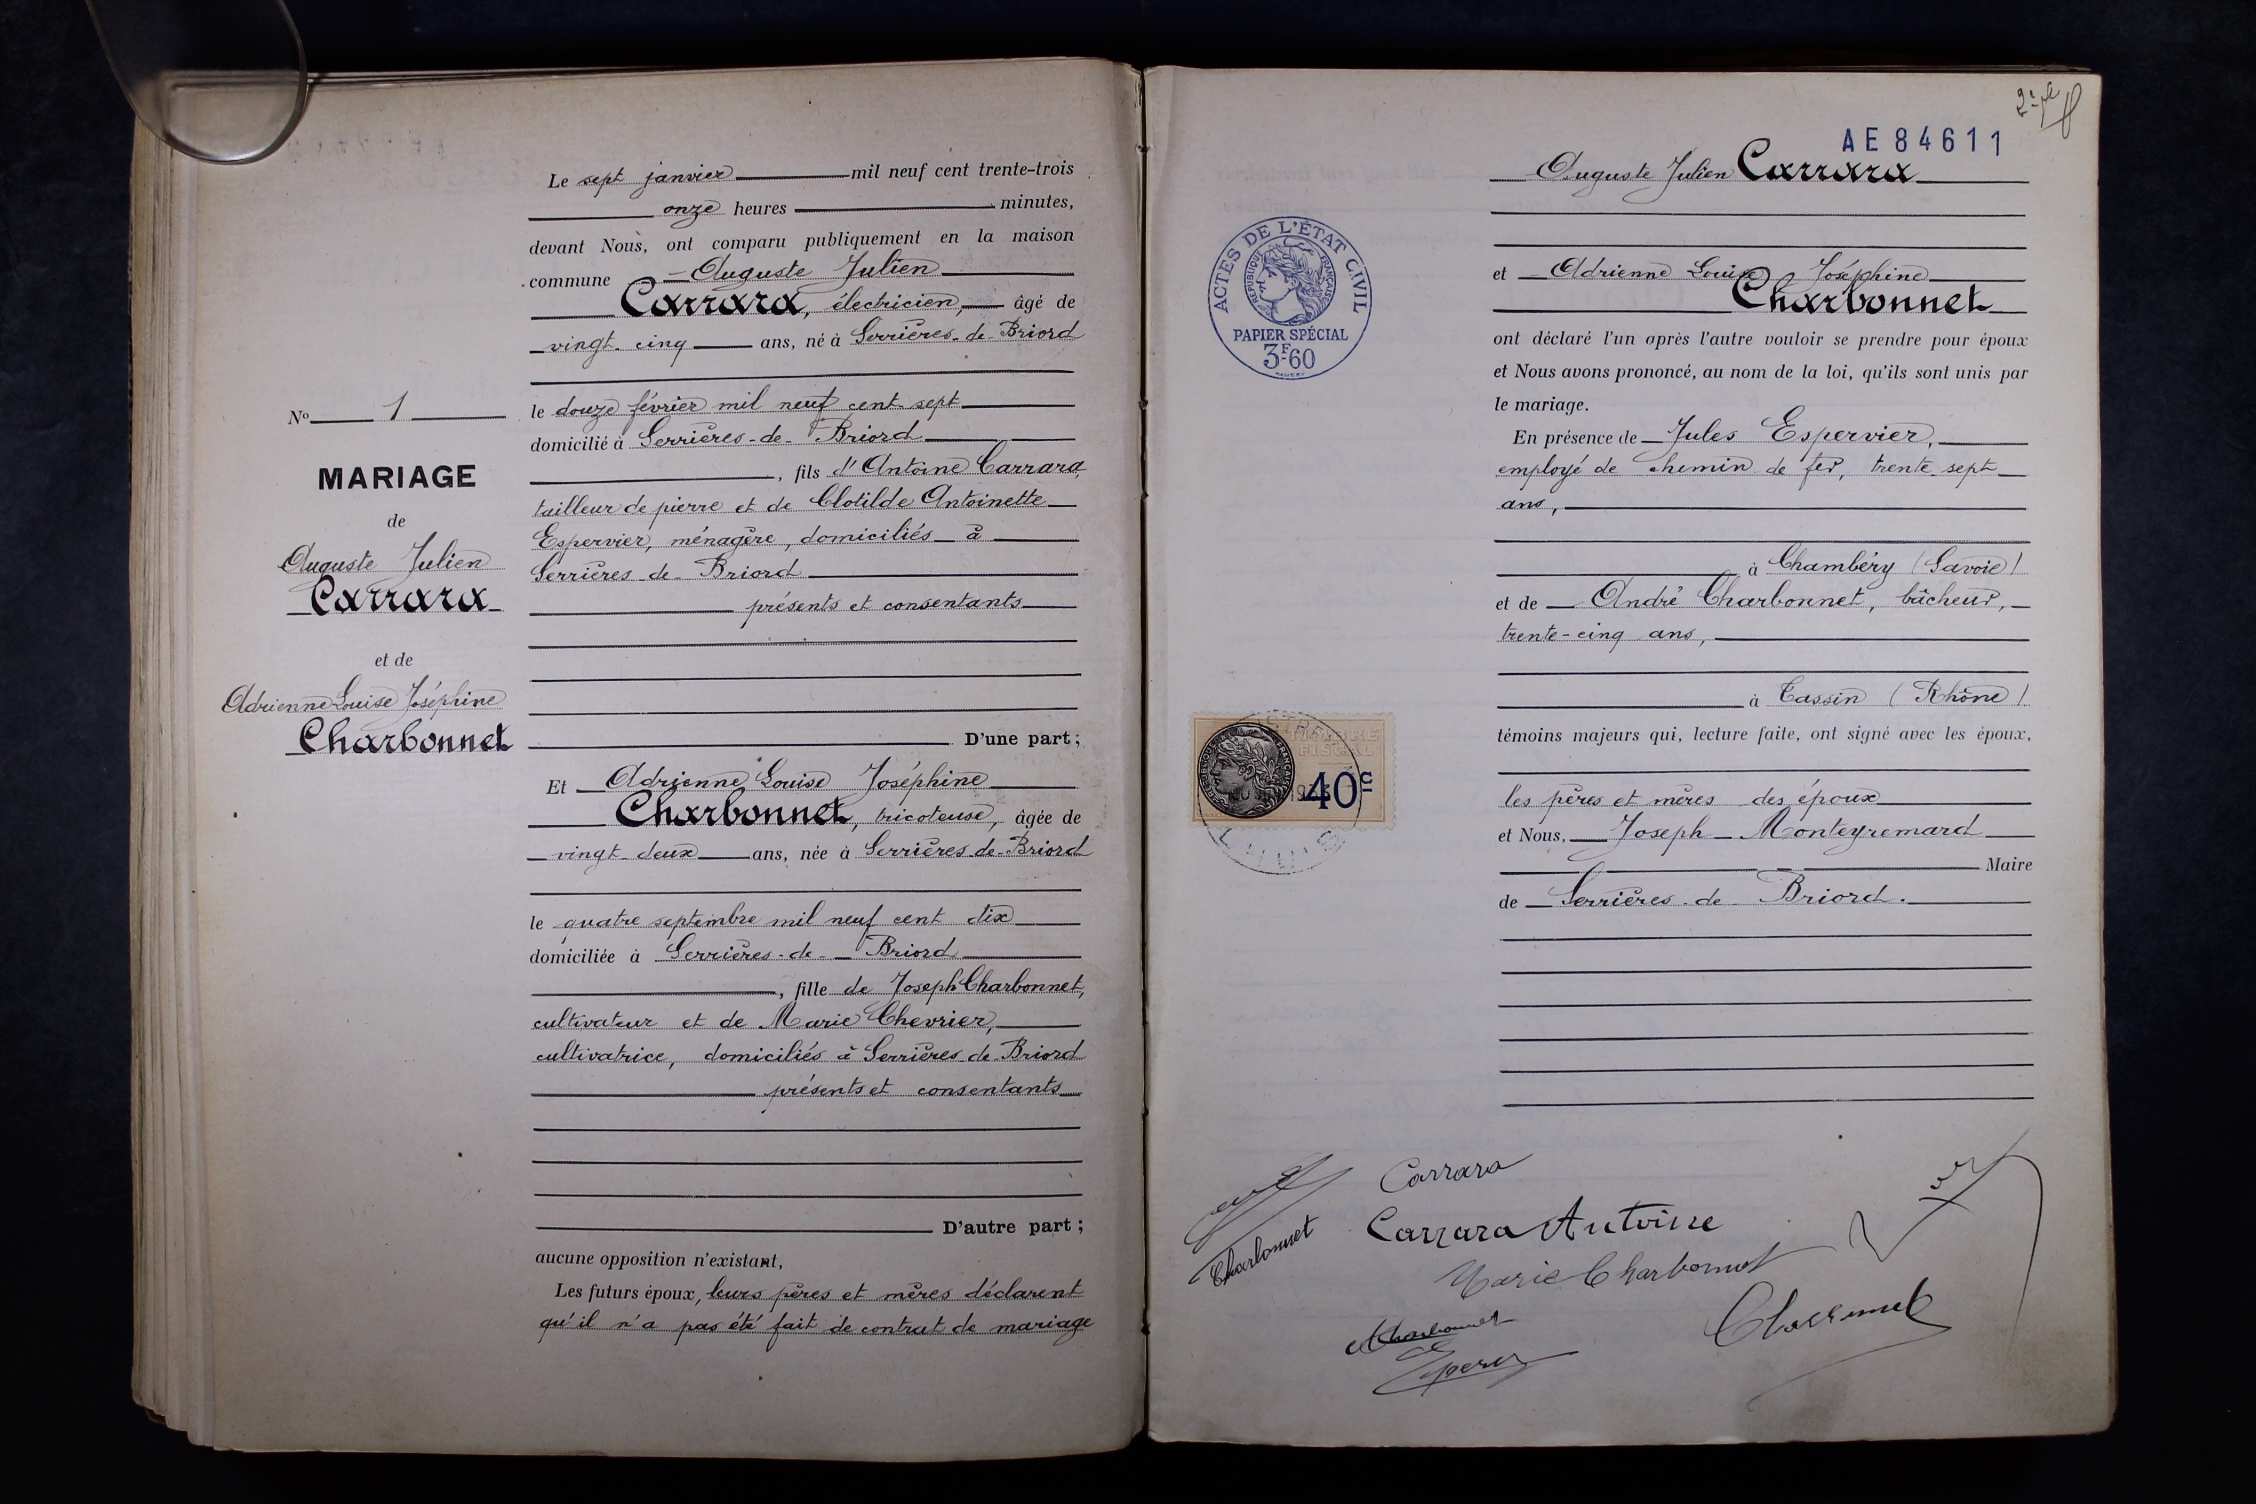 Le sept janvier mil neuf cent trente-trois
onze heures minutes,
devant Nous, ont comparu publiquement en la maison
commune Auguste Julien
Carrara, électricien, âgé de
vingt-cinq ans, né à Serrières-de-Briord
le douze février mil neuf cent sept
domicilié à Serrières-de-Briord
, fils d'Antoine Carrara,
tailleur de pierre et de Clotilde Antoinette
Espervier, ménagère, domiciliés à
Serrières-de-Briord
présents et consentants
D'une part;
Et Adrienne Louise Joséphine
Charbonnet, tricoteuse, âgée de
vingt-deux ans, née à Serrières-de-Briord
le quatre septembre mil neuf cent dix
domiciliée à Serrières-de-Briord
, fille de Joseph Charbonnet,
cultivateur et de Marie Chevrier,
cultivatrice, domiciliés à Serrières-de-Briord
présents et consentants
D'autre part;
aucune opposition n'existant,
Les futurs époux, leurs pères et mères déclarent
qu'il n'a pas été fait de contrat de mariage
No 1
MARIAGE
de
Auguste Julien
Carrara
et de
Adrienne Louise Joséphine
Charbonnet
AE 84611
Auguste Julien Carrara
et Adrienne Louise Joséphine
Charbonnet
ont déclaré l'un après l'autre vouloir se prendre pour époux
et Nous avons prononcé, au nom de la loi, qu'ils sont unis par
le mariage.
En présence de Jules Espervier,
employé de chemin de fer, trente-sept
ans,
à Chambéry (Savoie)
et de André Charbonnet, bâcheur,
trente-cinq ans,
à Tassin (Rhône)
témoins majeurs qui, lecture faite, ont signé avec les époux,
les pères et mères des époux
et Nous, Joseph Monteyremard
Maire
de Serrières-de-Briord.
ACTES DE L'ÉTAT CIVIL
RÉPUBLIQUE FRANÇAISE
PAPIER SPÉCIAL
3F60
TIMBRE
FISCAL
40c
Carrara
Charbonnet
Carrara Antoine
Marie Charbonnet
Charbonnet